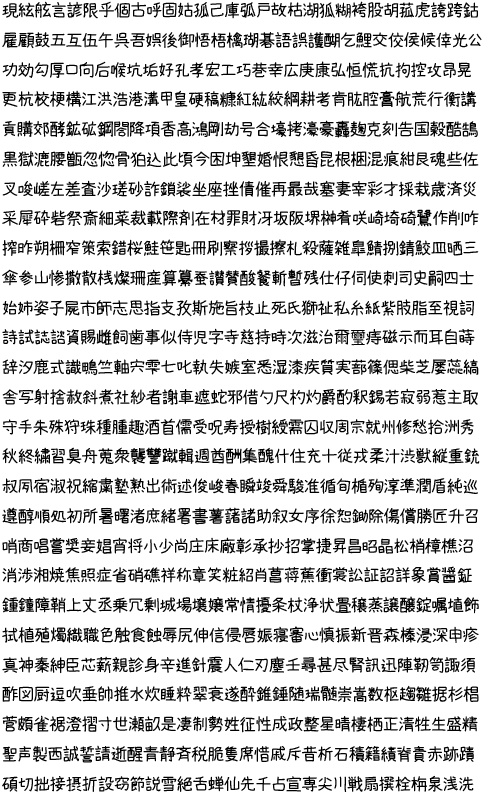 現絃舷言諺限乎個古呼固姑孤己庫弧戸故枯湖狐糊袴股胡菰虎誇跨鈷
雇顧鼓五互伍午呉吾娯後御悟梧檎瑚碁語誤護醐乞鯉交佼侯候倖光公
功効勾厚口向后喉坑垢好孔孝宏工巧巷幸広庚康弘恒慌抗拘控攻昂晃
更杭校梗構江洪浩港溝甲皇硬稿糠紅紘絞綱耕考肯肱腔膏航荒行衡講
貢購郊酵鉱砿鋼閤降項香高鴻剛劫号合壕拷濠豪轟麹克刻告国穀酷鵠
黒獄漉腰甑忽惚骨狛込此頃今困坤墾婚恨懇昏昆根梱混痕紺艮魂些佐
叉唆嵯左差査沙瑳砂詐鎖裟坐座挫債催再最哉塞妻宰彩才採栽歳済災
采犀砕砦祭斎細菜裁載際剤在材罪財冴坂阪堺榊肴咲崎埼碕鷺作削咋
搾昨朔柵窄策索錯桜鮭笹匙冊刷察拶撮擦札殺薩雑皐鯖捌錆鮫皿晒三
傘参山惨撒散桟燦珊産算纂蚕讃賛酸餐斬暫残仕仔伺使刺司史嗣四士
始姉姿子屍市師志思指支孜斯施旨枝止死氏獅祉私糸紙紫肢脂至視詞
詩試誌諮資賜雌飼歯事似侍児字寺慈持時次滋治爾璽痔磁示而耳自蒔
辞汐鹿式識鴫竺軸宍雫七叱執失嫉室悉湿漆疾質実蔀篠偲柴芝屡蕊縞
舎写射捨赦斜煮社紗者謝車遮蛇邪借勺尺杓灼爵酌釈錫若寂弱惹主取
守手朱殊狩珠種腫趣酒首儒受呪寿授樹綬需囚収周宗就州修愁拾洲秀
秋終繍習臭舟蒐衆襲讐蹴輯週酋酬集醜什住充十従戎柔汁渋獣縦重銃
叔夙宿淑祝縮粛塾熟出術述俊峻春瞬竣舜駿准循旬楯殉淳準潤盾純巡
遵醇順処初所暑曙渚庶緒署書薯藷諸助叙女序徐恕鋤除傷償勝匠升召
哨商唱嘗奨妾娼宵将小少尚庄床廠彰承抄招掌捷昇昌昭晶松梢樟樵沼
消渉湘焼焦照症省硝礁祥称章笑粧紹肖菖蒋蕉衝裳訟証詔詳象賞醤鉦
鍾鐘障鞘上丈丞乗冗剰城場壌嬢常情擾条杖浄状畳穣蒸譲醸錠嘱埴飾
拭植殖燭織職色触食蝕辱尻伸信侵唇娠寝審心慎振新晋森榛浸深申疹
真神秦紳臣芯薪親診身辛進針震人仁刃塵壬尋甚尽腎訊迅陣靭笥諏須
酢図厨逗吹垂帥推水炊睡粋翠衰遂酔錐錘随瑞髄崇嵩数枢趨雛据杉椙
菅頗雀裾澄摺寸世瀬畝是凄制勢姓征性成政整星晴棲栖正清牲生盛精
聖声製西誠誓請逝醒青静斉税脆隻席惜戚斥昔析石積籍績脊責赤跡蹟
碩切拙接摂折設窃節説雪絶舌蝉仙先千占宣専尖川戦扇撰栓栴泉浅洗